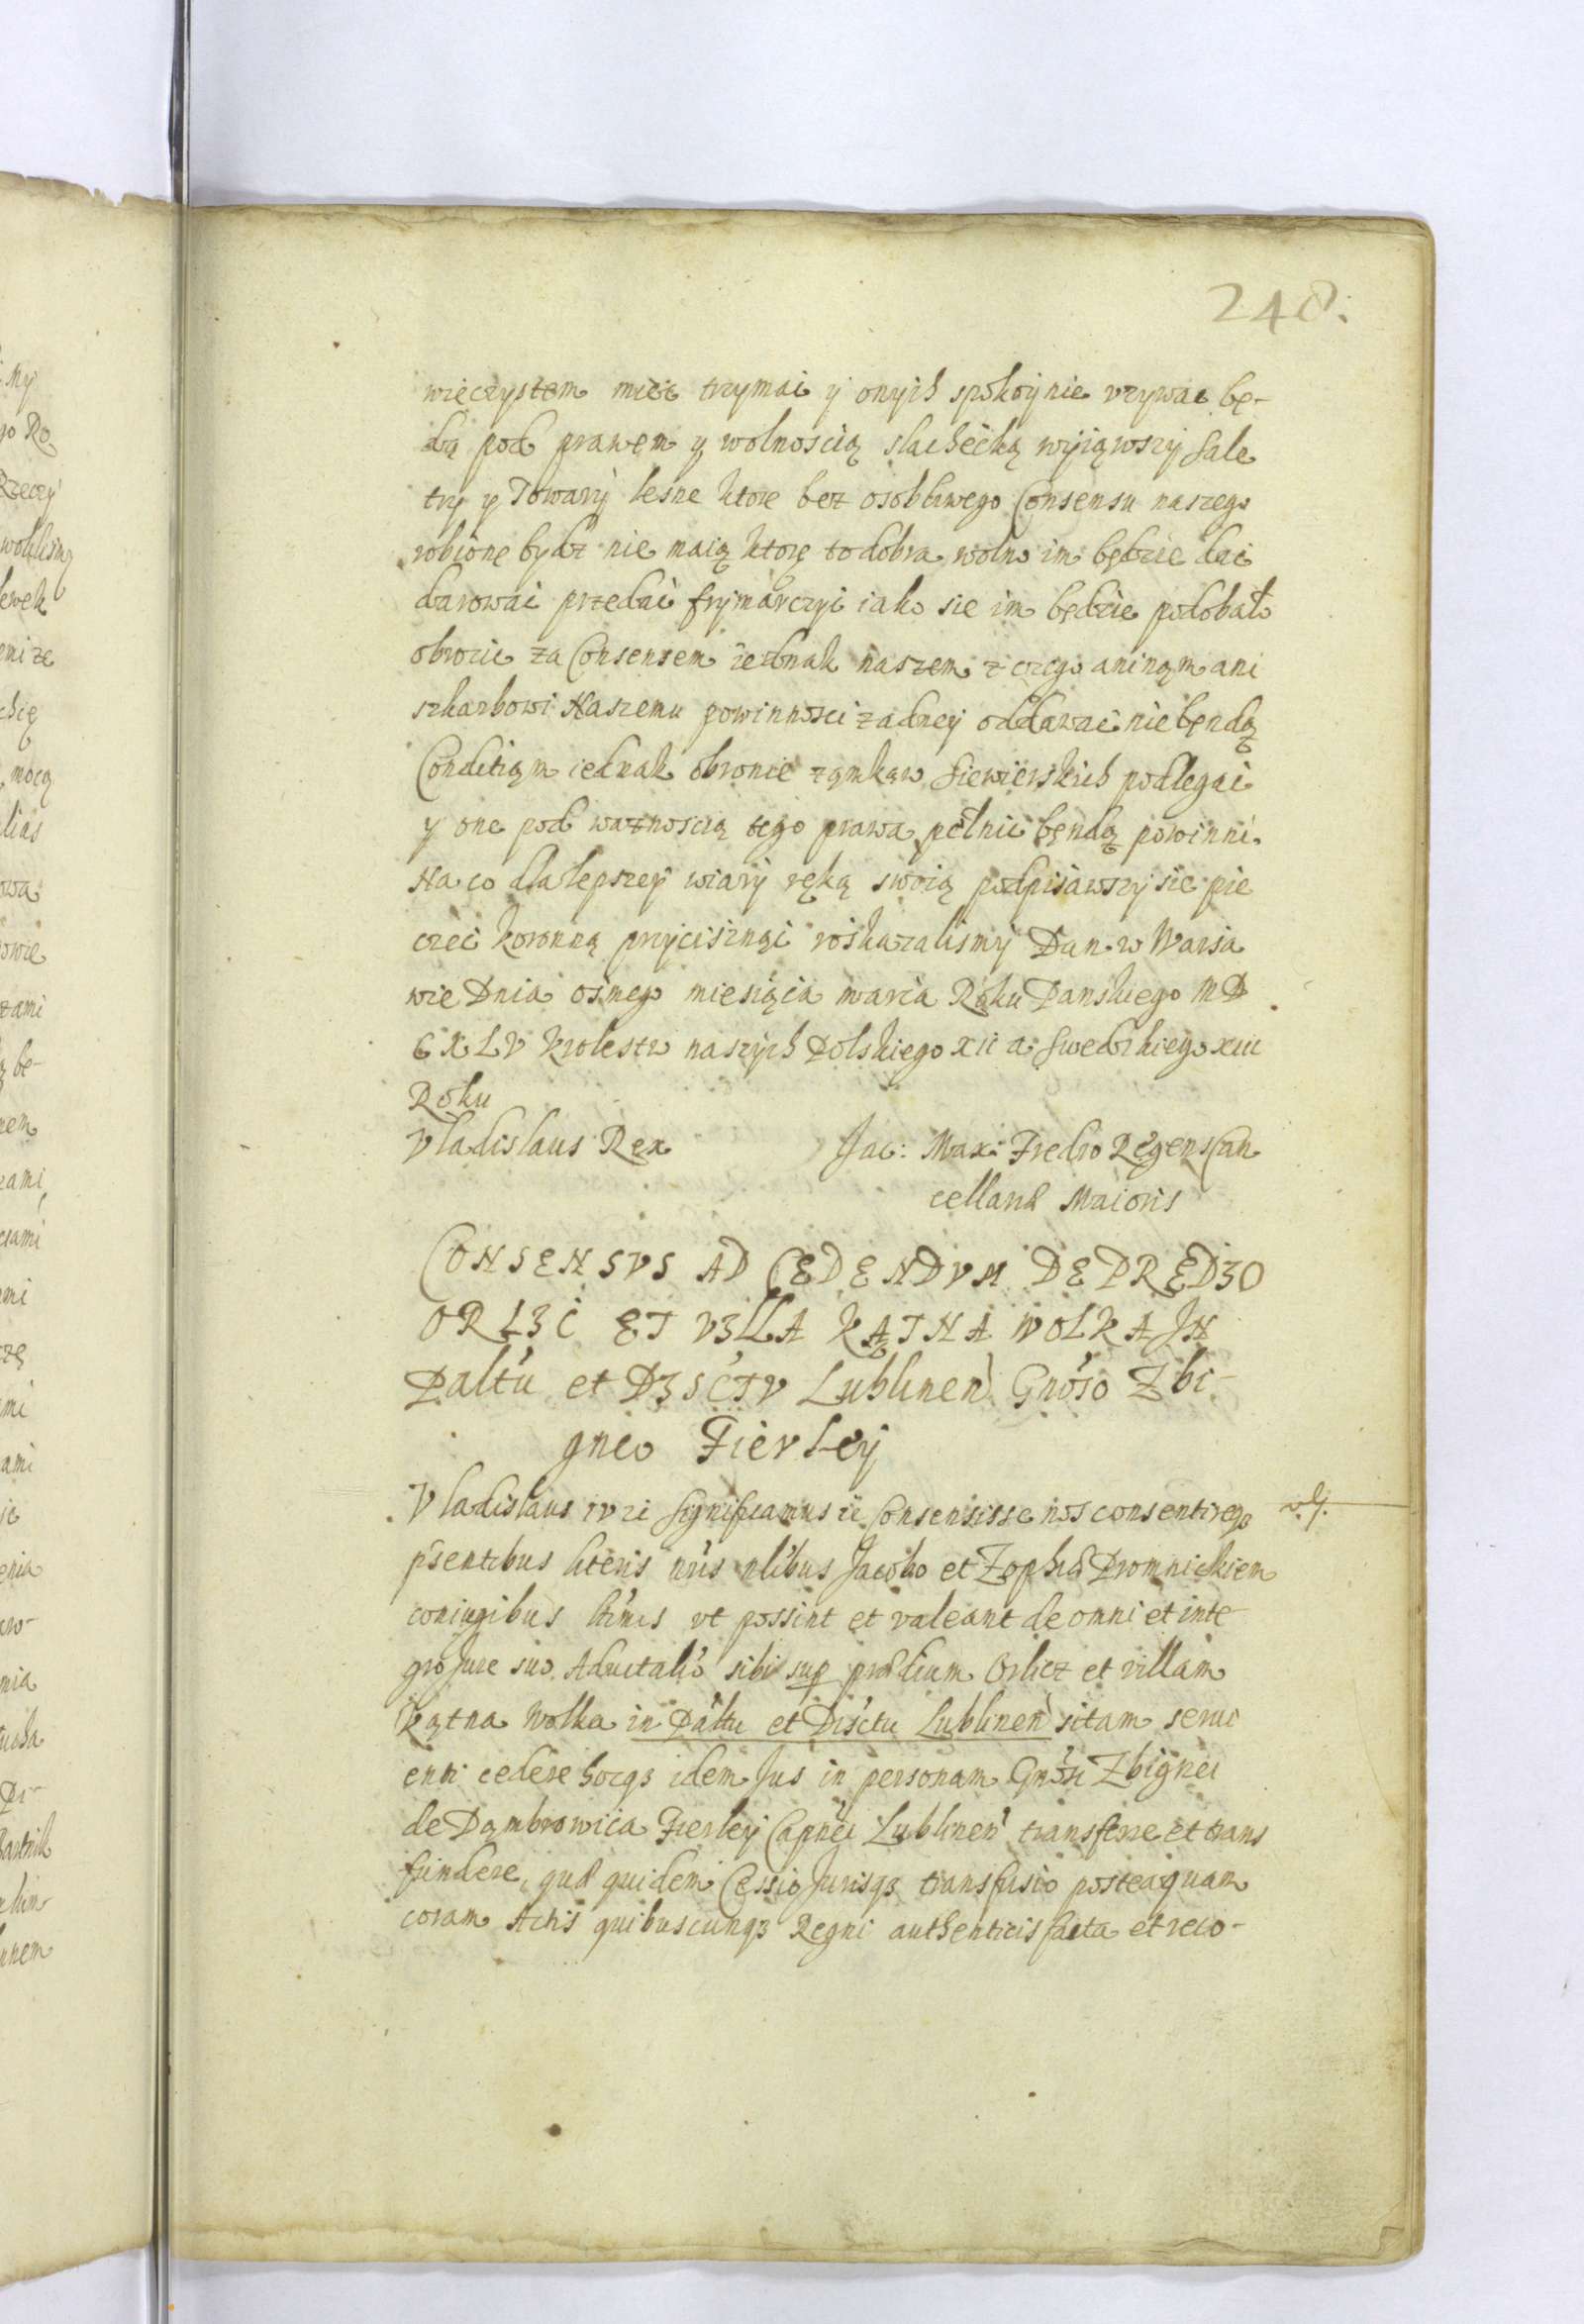 248.
wieczystem mieć trzymać y onych spokoynie vzywać bę-
dą pod prawem y wolnoscią slachecką wyiąwszy Sale
try y Towary lesne ktore bez osobliwego Consensu naszego
robione bydz nie maią ktore to dobra wolno im będzie dać
darować przedać frymarczyć iako sie im będzie podobało
obrocić za Consensem iednak naszem z czego aninąm ani
szkarbowi Naszemu powinnosci zadney oddawać nie bęndą
Conditiąm iednak obronie ząmkąw Siewierskich podlegać
y one pod waznoscią tego prawa pełnić bęndą powinni.
Na co dla lepszey wiary ręką swoią podpisawszy sie pie
częć koronną przycisznąć roskazalismy Dan w Warsza
wie Dnia osmego miesiąca marca Roku Panskiego MD
CXLV Krolestw naszych Polskiego XII a Swedzkiego XIII
Roku
Vladislaus Rex Jac: Max: Fredro Regens Can
cellariæ Maioris
CONSENSVS AD CEDENDVM DE PRÆDIO
ORLIC ET VILLA KĄTNA WOLKA IN
Paltu et DISCTV Lublinen Gnoso Zbi-
gneo Fierley
Vladislaus IV ri Significamus ii Consensisse nos consentireqз
psentibus literis nris nlibus Jacobo et Zophiæ Dromnickiem
coniugibus ltimis vt possint et valeant de omni et inte-
gro Jure suo Aduitali sibi sup prædium Orlicz et villam
Kątna Wolka in Paltu et Disctu Lublinen sitam serui
enti cedere hocqз idem Jus in personam Gnosi Zbignei
de Dąmbrowica Fierley Capnei Lublinen transferre et trans
fundere, quæ quidem Cessio Jurisqз transfusio posteaquam
coram Actis quibuscunqз Regni authenticis facta et reco-